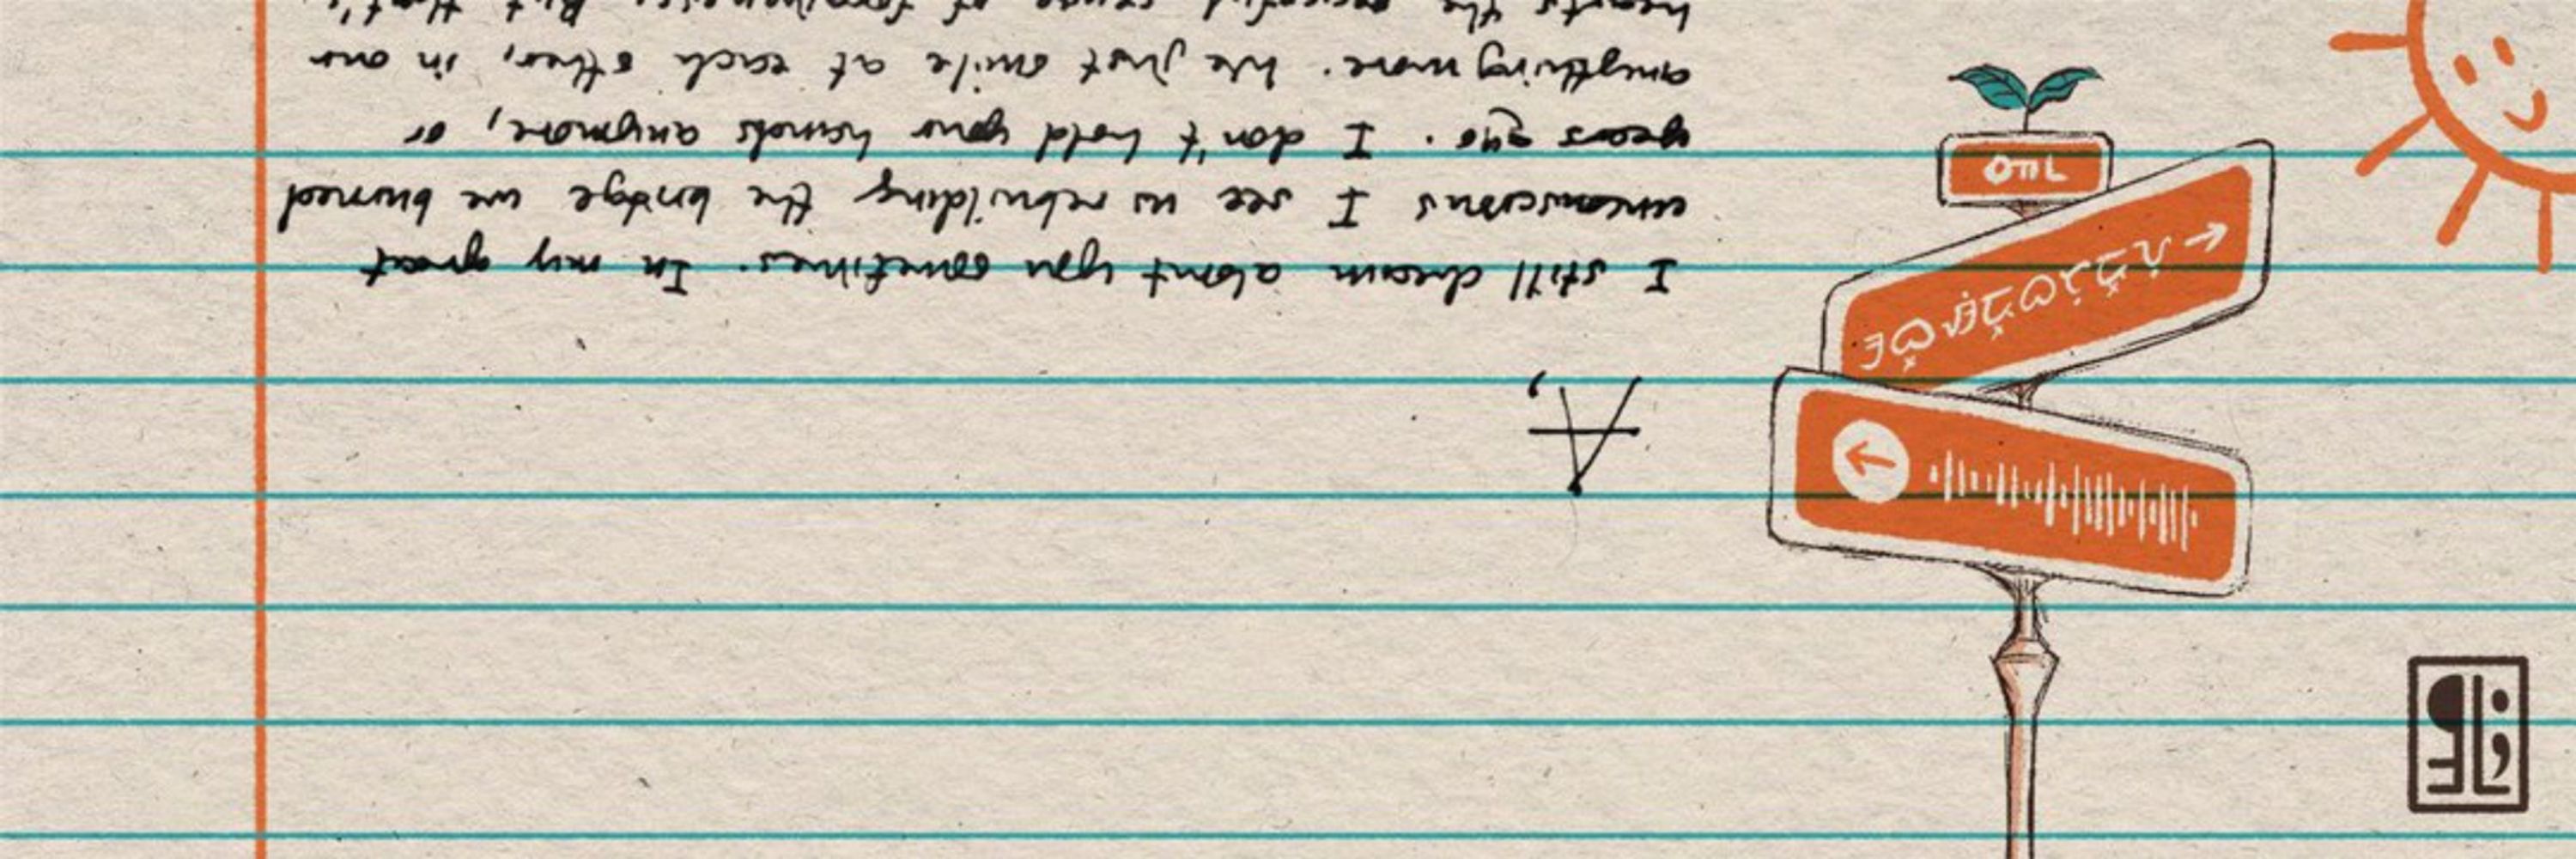 A,
I still dream about you sometimes. In my great
unconscious I see us rebuilding the bridge we burned
years ago. I don't hold your hands anymore, or
anything more. We just smile at each other, in our
hearts the peaceful sense of forgiveness. But that's